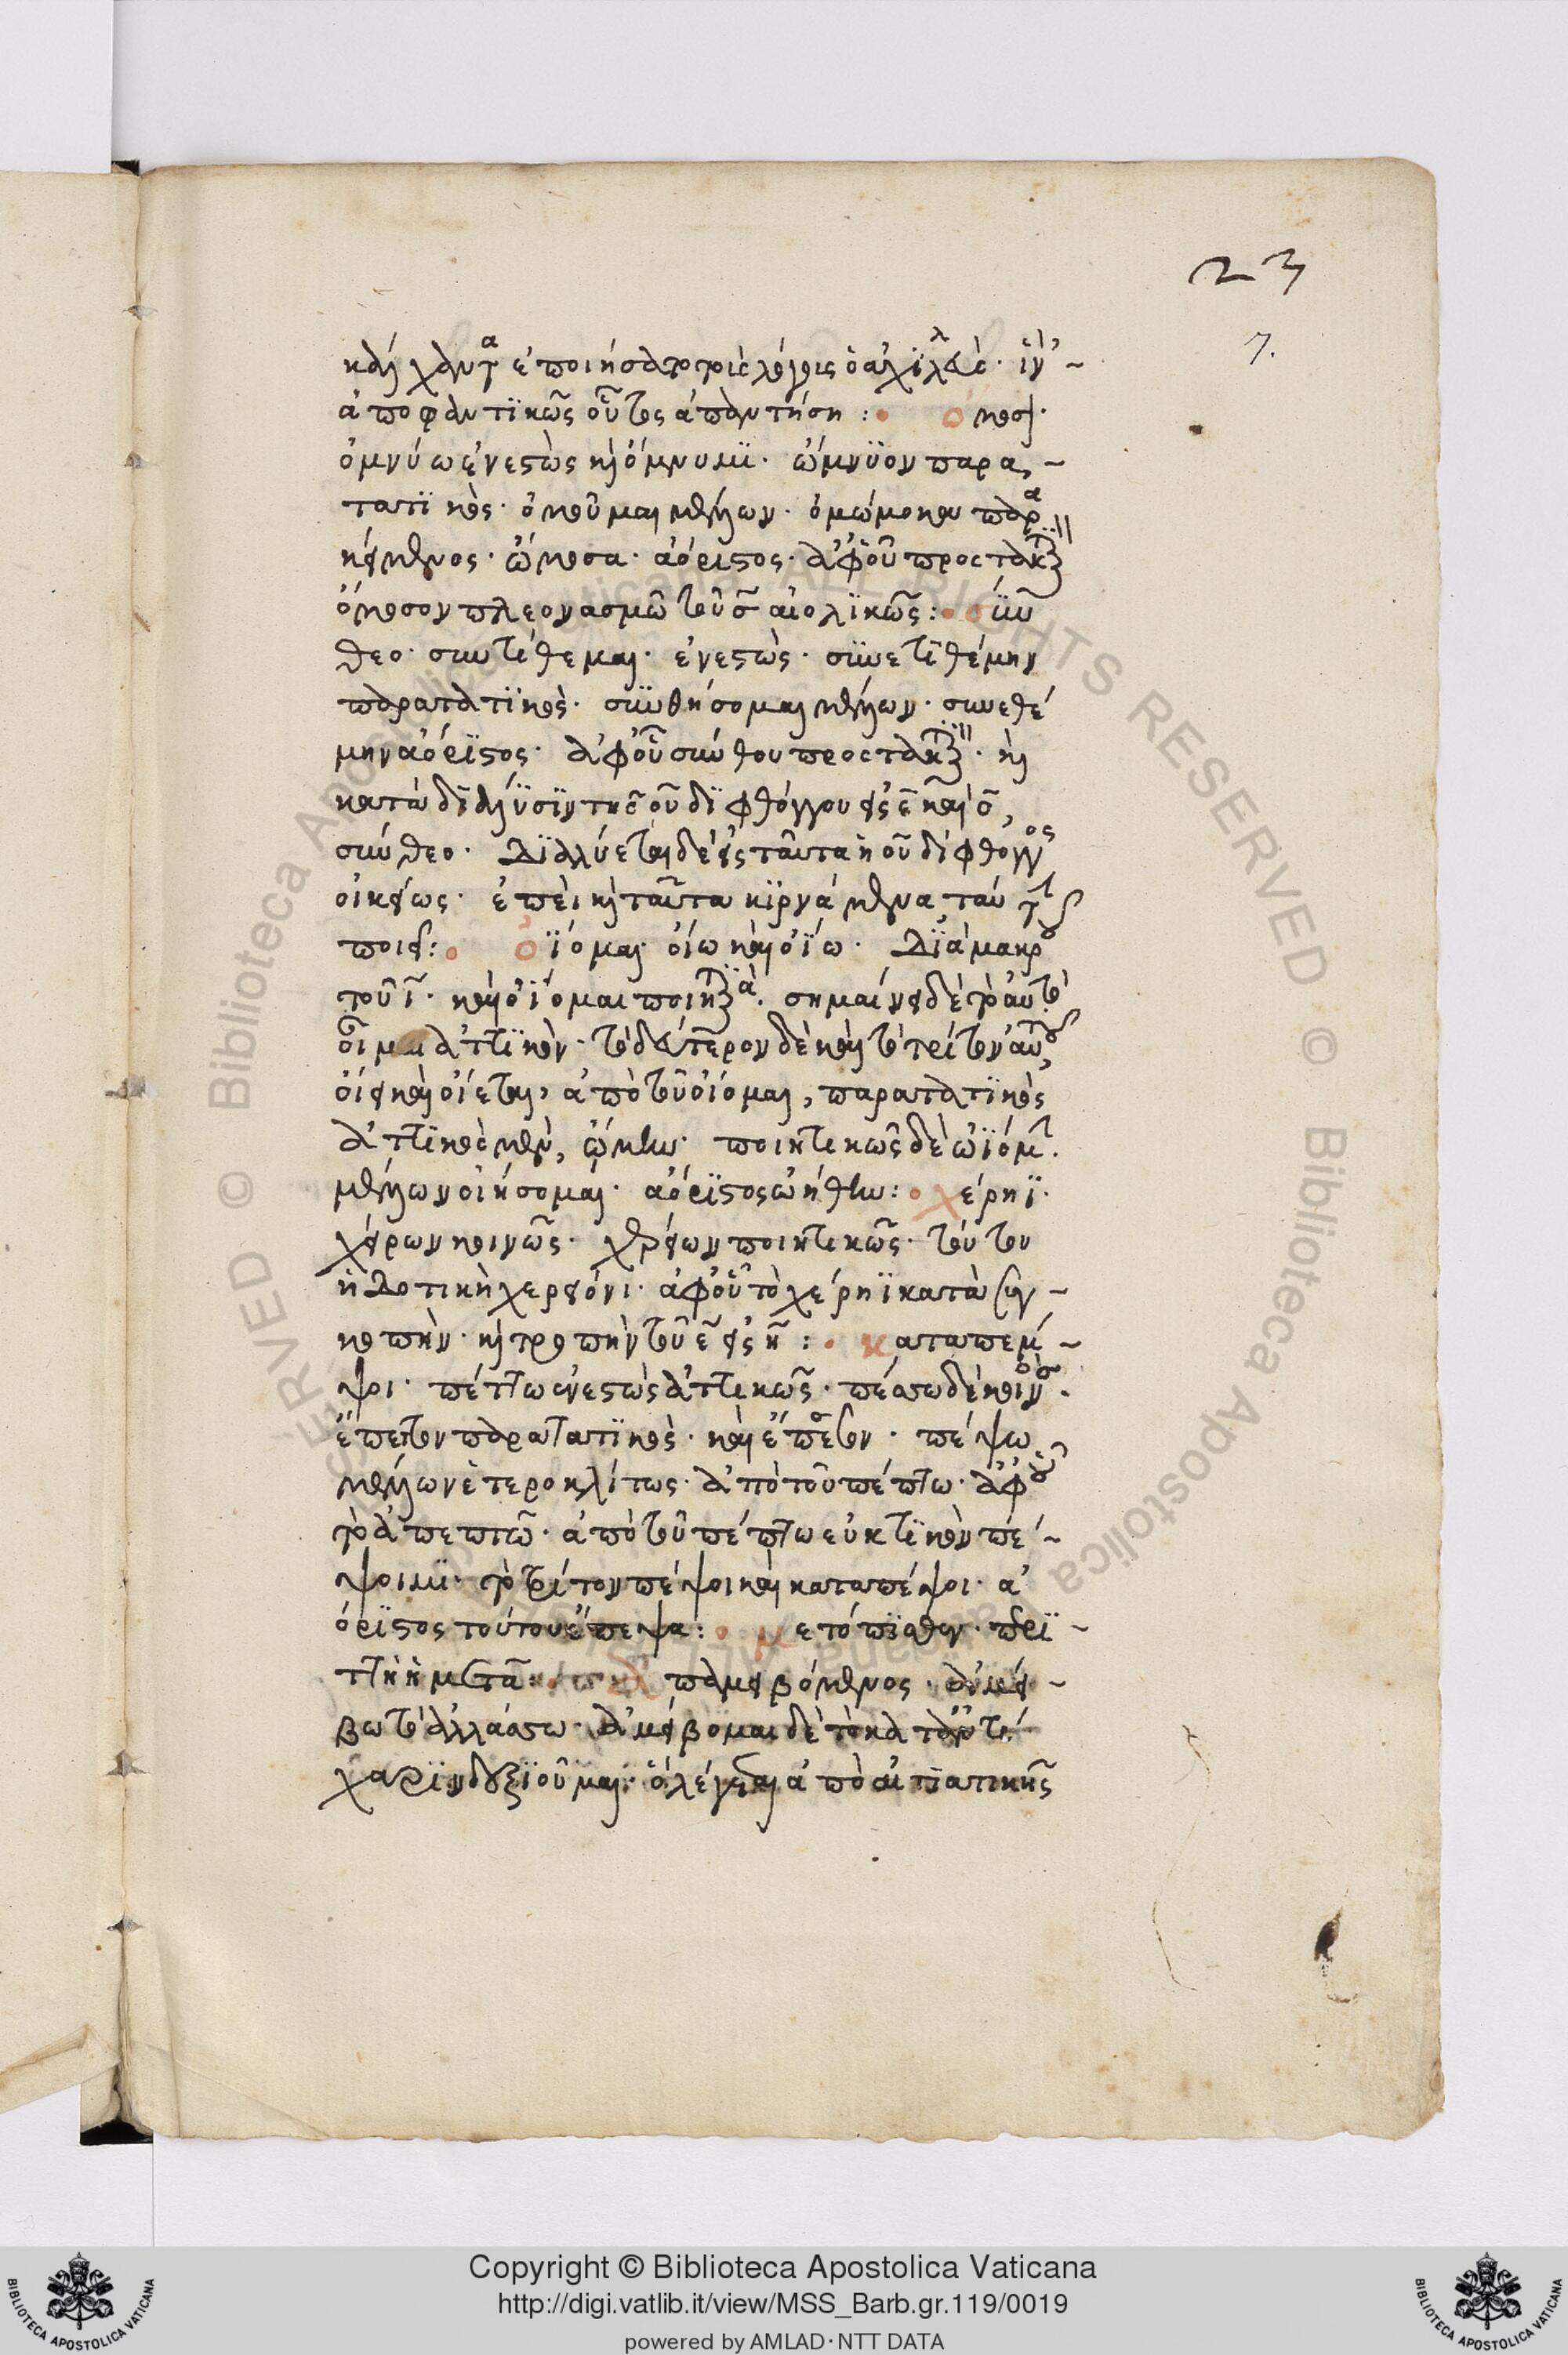 23
7.
ἐποιήσατο τοῖς λόγοις ὁ ἀχιλλεὺς· ἵν' -
ἀποφαντϊκῶς οὕτως ἀπαντήση : ὄμοσ·
ὀμνύω ἐνεστὼς καὶ ὄμνυμϊ· ὤμνϋον παρα -
τατϊκὸς· ὀμοῦμαι μέλλων· ὀμώμοκα παρα
κείμενος· ὤμοσα· ἀόριστος· ἀφ' οὗ προστακ
ὄμοσον πλεονασμῶ τοῦ σ αἰολϊκῶς : σύν
θεο· συντίθεμαι· ἐνεστὼς· συνετϊθέμην
παρατατϊκὸς· συνθήσομαι μέλλων· συνεθέ
μην ἀόρϊστος· ἀφ' οὗ σύνθου προστακ· καὶ
κατὰ διάλϋσϊν τῆς ου δϊφθόγγου εἰς ε καὶ ο,
σύνθεο· Διαλύεται δὲ εἰς ταῦτα ἡ ου δίφθογγος
οἰκείως· ἐπεὶ καὶ ταῦτα κϊρνάμενα ταύτ
ποιεῖ : ὀΐομαι· οἴω καὶ ὀΐω· Διὰ μακροῦ
τοῦ ι· καὶ ὀΐομαι ποιητ· σημαίνει δὲ τὸ αὐτό
οἶμαι ἀττϊκὸν· τὸ δεύτερον δὲ καὶ τὸ τρίτον αὐτοῦ
οἴει καὶ οἴεται, ἀπὸ τοῦ οἴομαι, παρατατϊκὸς
ἀττϊκὸς μὲν, ᾤμην· ποιητικῶς δὲ ὠϊόμ.
μέλλων οἰήσομαι· ἀόρϊστος ὠήθην : χέρηϊ·
χείρων κοινῶς· χερείων ποιητικῶς· τούτου
ἡ Δοτικὴ χερείονι· ἀφ' οὗ τὸ χέρηϊ κατὰ συγ -
κοπὴν· καὶ τροπὴν τοῦ ε εἰς η : καταπέμ -
ψοι· πέττω ἐνεστὼς ἀττικῶς· πέσσω δὲ κοινῶς·
ἔπεττον παρατατϊκὸς· καὶ ἔπεσσον· πέψω
μέλλων ἑτεροκλίτως· ἀπὸ τοῦ πέπτω· ἀφ' οὗ
τὸ ἀπεπτῶ· ἀπὸ τοῦ πέπτω εὐκτϊκὸν πέ -
ψοιμϊ· τὸ τρίτον πέψοι καὶ καταπέψοι· ἀ
όρϊστος τούτου ἔπεψα : μετόπϊσθεν· περϊ -
ττὴ ἡ μετα : παμειβόμενος· ἀμεί -
βω τὸ ἀλλάσσω· ἀμείβομαι δὲ τὸ
χάρϊν δεξϊοῦμαι· ὃ λέγεται ἀπὸ αἰτϊατικῆς
Copyright © Biblioteca Apostolica Vaticana
http://digi.vatlib.it/view/MSS_Barb.gr.119/0019
powered by AMLAD · NTT DATA